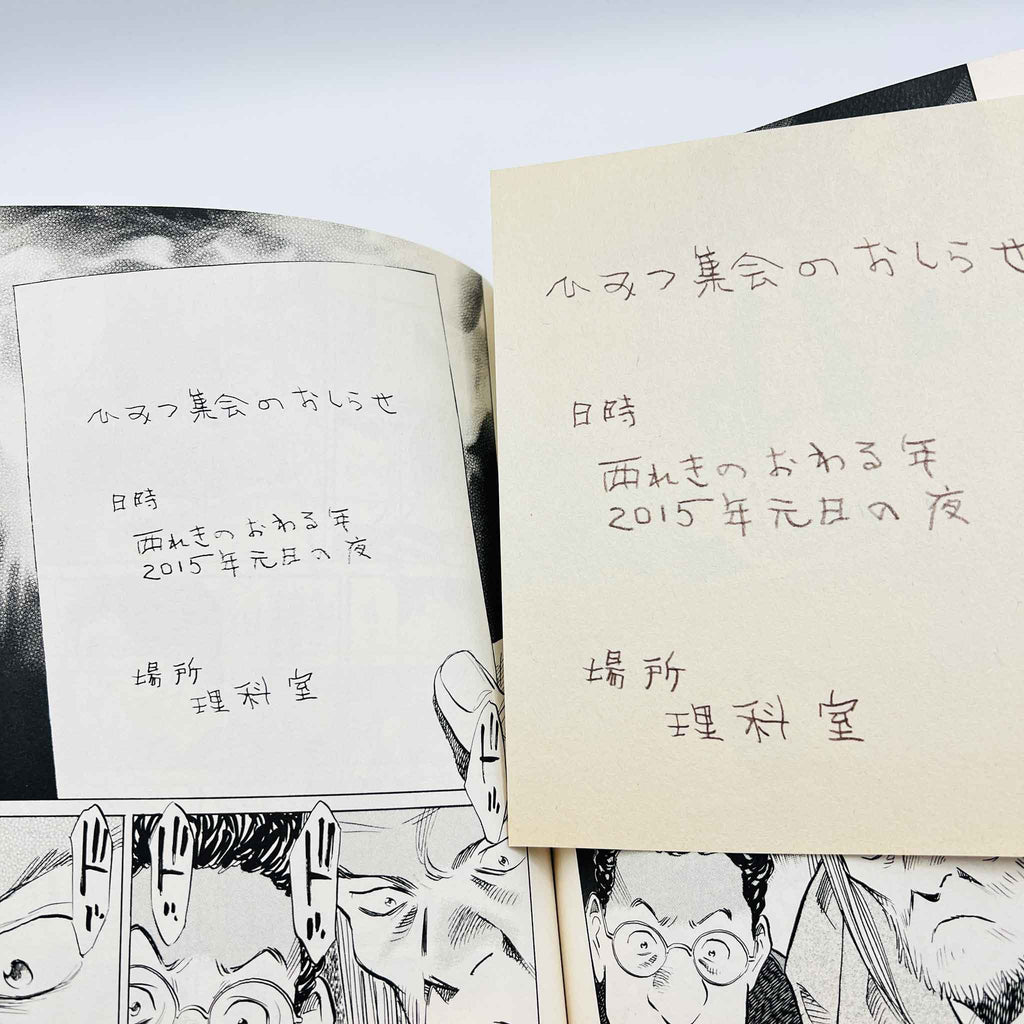 ひみつ集会のおしらせ
日時
西れきのおわる年
2015年元旦の夜
場所
理科室
ド
ド
ド
ド
ひみつ集会のおしらせ
日時
西れきのおわる年
2015年元旦の夜
場所
理科室